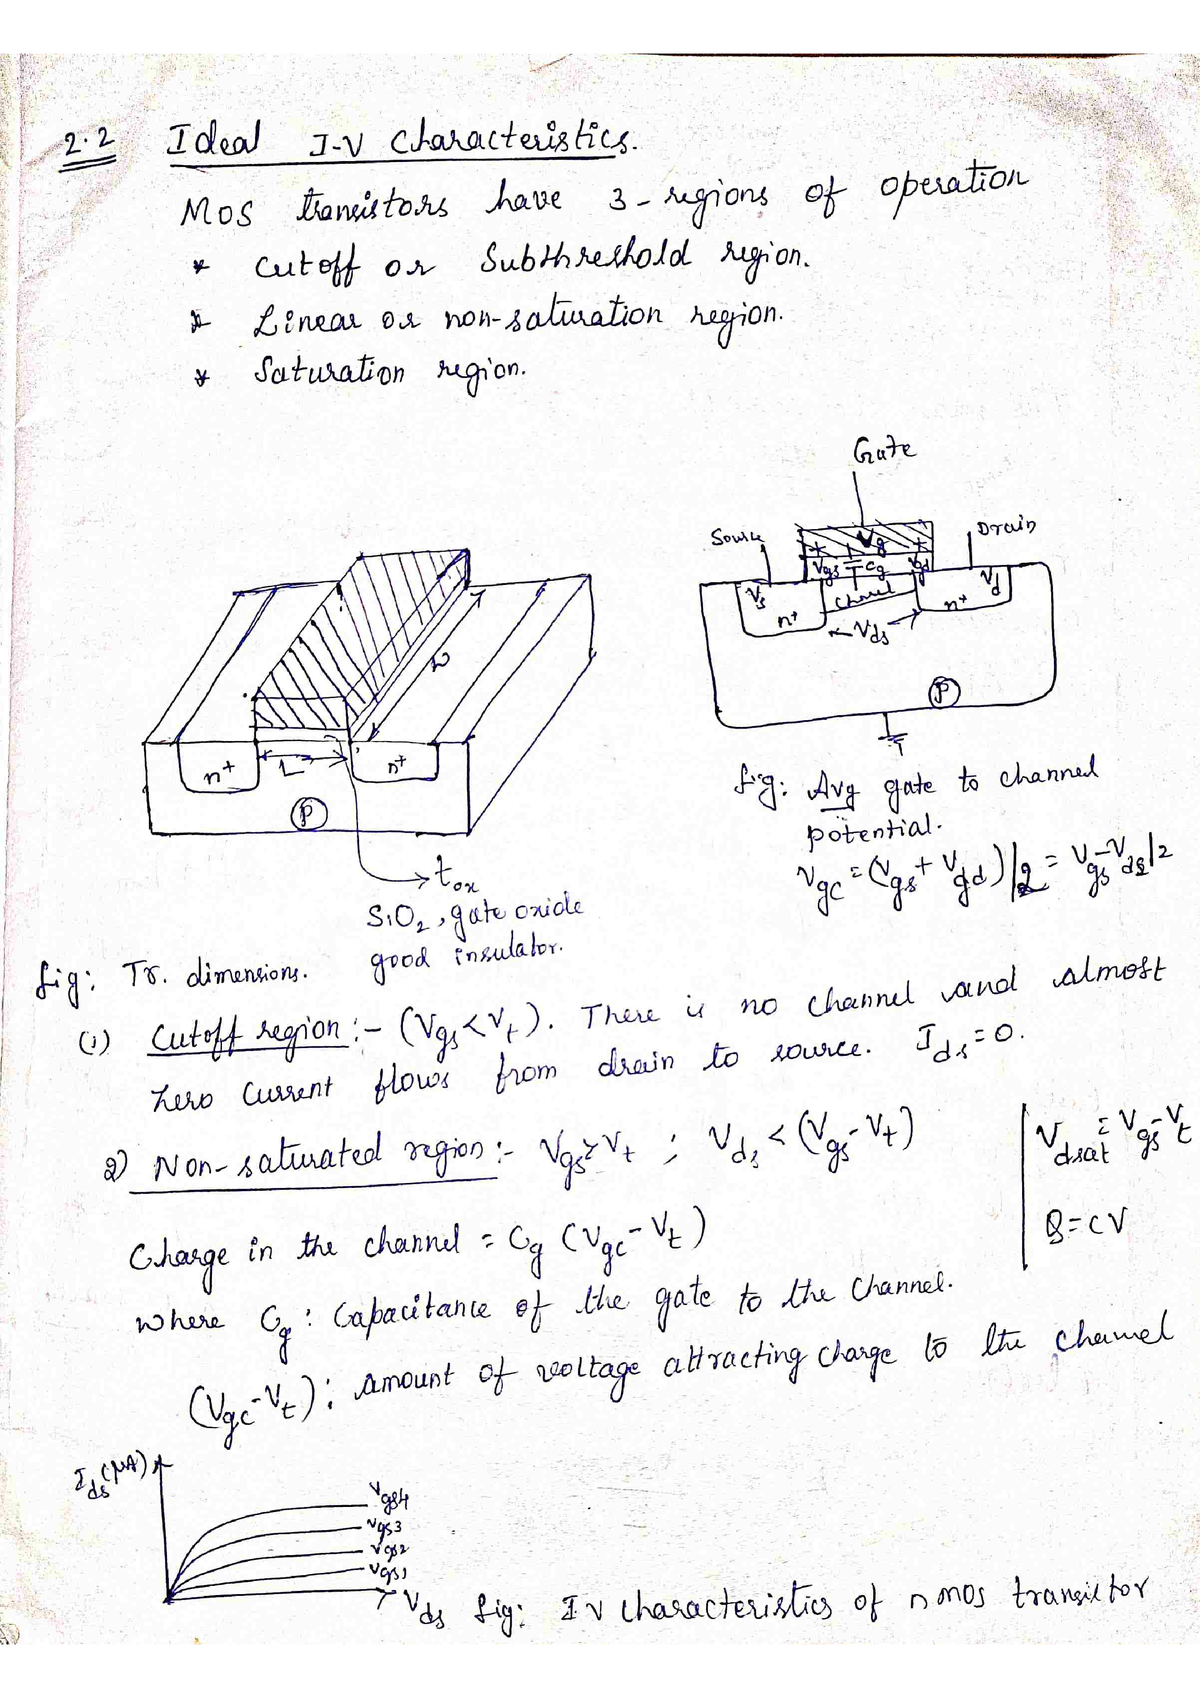 2.2 Ideal I-V Characteristics.
MOS transistors have 3-regions of operation
* Cutoff or Subthreshold region.
* Linear or non-saturation region.
* Saturation region.
Gate
Source
Drain
Vg
+ +
Vgs Cg Vgd
Vs
Vd
n+ n+
← Vds →
P
W
n+ ← L → n+
P
tox
SiO2, gate oxide
good insulator.
fig: Tr. dimensions.
fig: Avg gate to channel
potential.
Vgc = (Vgs + Vgd)/2 = Vgs - Vds/2
(1) Cutoff region :- (Vgs < Vt). There is no channel and almost
zero current flows from drain to source. Ids = 0.
2) Non-saturated region :- Vgs ≥ Vt ; Vds < (Vgs - Vt)
Vdsat = Vgs - Vt
Q = CV
Charge in the channel = Cg (Vgc - Vt)
where Cg : Capacitance of the gate to the channel.
(Vgc - Vt) : amount of voltage attracting charge to the channel
Ids (μA)
Vgs4
Vgs3
Vgs2
Vgs1
Vds
fig: IV characteristics of nmos transistor